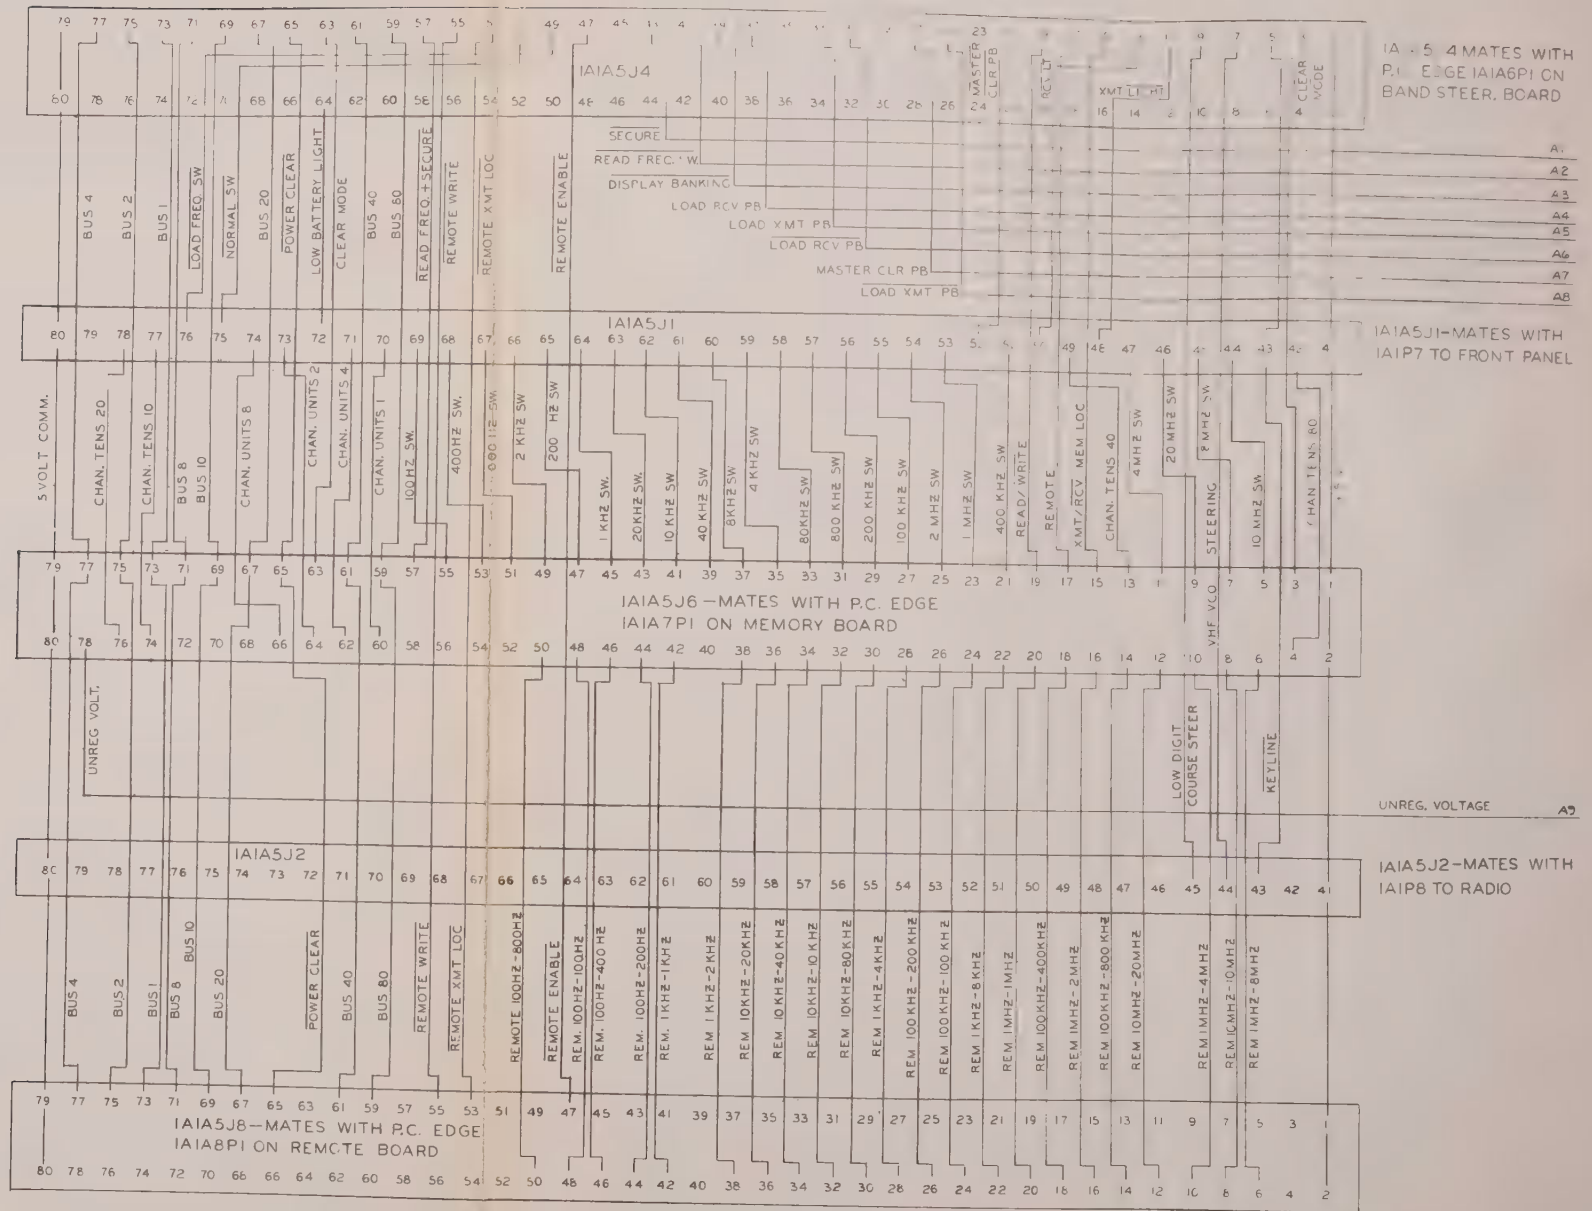 79 77 75 73 71 69 67 65 63 61 59 57 55 49 47 45 23
MASTER CLR PB
RCV LT
XMT LT
CLEAR MODE
1A1A5J4
60 78 76 74 68 66 64 62 60 58 56 54 52 50 48 46 44 42 40 38 36 34 32 30 28 26 24 16 14 10 8 4
MATES WITH
EDGE 1A1A6P1 ON
BAND STEER. BOARD
SECURE
READ FREC.
DISPLAY BANKING
LOAD RCV PB
LOAD XMT PB
LOAD RCV PB
MASTER CLR PB
LOAD XMT PB
A2
A3
A4
A5
A6
A7
A8
BUS 4
BUS 2
BUS 1
LOAD FREQ. SW
NORMAL SW
BUS 20
POWER CLEAR
LOW BATTERY LIGHT
CLEAR MODE
BUS 40
BUS 80
READ FREQ. + SECURE
REMOTE WRITE
REMOTE XMT LOC
REMOTE ENABLE
1A1A5J1
80 79 78 77 76 75 74 73 72 71 70 69 68 67 66 65 64 63 62 61 60 59 58 57 56 55 54 53 49 48 47 46 44 43
1A1A5J1-MATES WITH
1A1P7 TO FRONT PANEL
5 VOLT COMM.
CHAN. TENS 20
CHAN. TENS 10
BUS 8
BUS 10
CHAN. UNITS 8
CHAN. UNITS 2
CHAN. UNITS 4
CHAN. UNITS 1
100HZ SW.
400HZ SW.
2 KHZ SW
200 HZ SW
1 KHZ SW.
20KHZ SW
10 KHZ SW
40 KHZ SW
8KHZ SW
4 KHZ SW
80KHZ SW
800 KHZ SW
200 KHZ SW
100 KHZ SW
2 MHZ SW
1 MHZ SW
400 KHZ SW
READ/WRITE
REMOTE
XMT/RCV MEM LOC
CHAN. TENS 40
4MHZ SW
20 MHZ SW
8 MHZ SW
VHF VCO STEERING
10 MHZ SW
CHAN TENS 80
79 77 75 73 71 69 67 65 63 61 59 57 55 53 51 49 47 45 43 41 39 37 35 33 31 29 27 25 23 21 19 17 15 13 11 9 7 5 3 1
1A1A5J6-MATES WITH P.C. EDGE
1A1A7P1 ON MEMORY BOARD
80 78 76 74 72 70 68 66 64 62 60 58 56 54 52 50 48 46 44 42 40 38 36 34 32 30 28 26 24 22 20 18 16 14 12 10 8 6 4 2
UNREG VOLT.
LOW DIGIT
COURSE STEER
KEYLINE
UNREG. VOLTAGE A9
1A1A5J2
80 79 78 77 76 75 74 73 72 71 70 69 68 67 66 65 64 63 62 61 60 59 58 57 56 55 54 53 52 51 50 49 48 47 46 45 44 43 42 41
1A1A5J2-MATES WITH
1A1P8 TO RADIO
BUS 4
BUS 2
BUS 1
BUS 8
BUS 10
BUS 20
POWER CLEAR
BUS 40
BUS 80
REMOTE WRITE
REMOTE XMT LOC
REMOTE 100HZ-800HZ
REMOTE ENABLE
REM. 100HZ-100HZ
REM. 100HZ-400HZ
REM. 100HZ-200HZ
REM. 1KHZ-1KHZ
REM 1KHZ-2KHZ
REM 10KHZ-20KHZ
REM 10KHZ-40KHZ
REM 10KHZ-10KHZ
REM 10KHZ-80KHZ
REM 1KHZ-4KHZ
REM 100KHZ-200KHZ
REM 100KHZ-100KHZ
REM 1KHZ-8KHZ
REM 1MHZ-1MHZ
REM 100KHZ-400KHZ
REM 1MHZ-2MHZ
REM 100KHZ-800KHZ
REM 10MHZ-20MHZ
REM 1MHZ-4MHZ
REM 10MHZ-10MHZ
REM 1MHZ-8MHZ
79 77 75 73 71 69 67 65 63 61 59 57 55 53 51 49 47 45 43 41 39 37 35 33 31 29 27 25 23 21 19 17 15 13 11 9 7 5 3 1
1A1A5J8-MATES WITH P.C. EDGE
1A1A8P1 ON REMOTE BOARD
80 78 76 74 72 70 68 66 64 62 60 58 56 54 52 50 48 46 44 42 40 38 36 34 32 30 28 26 24 22 20 18 16 14 12 10 8 6 4 2